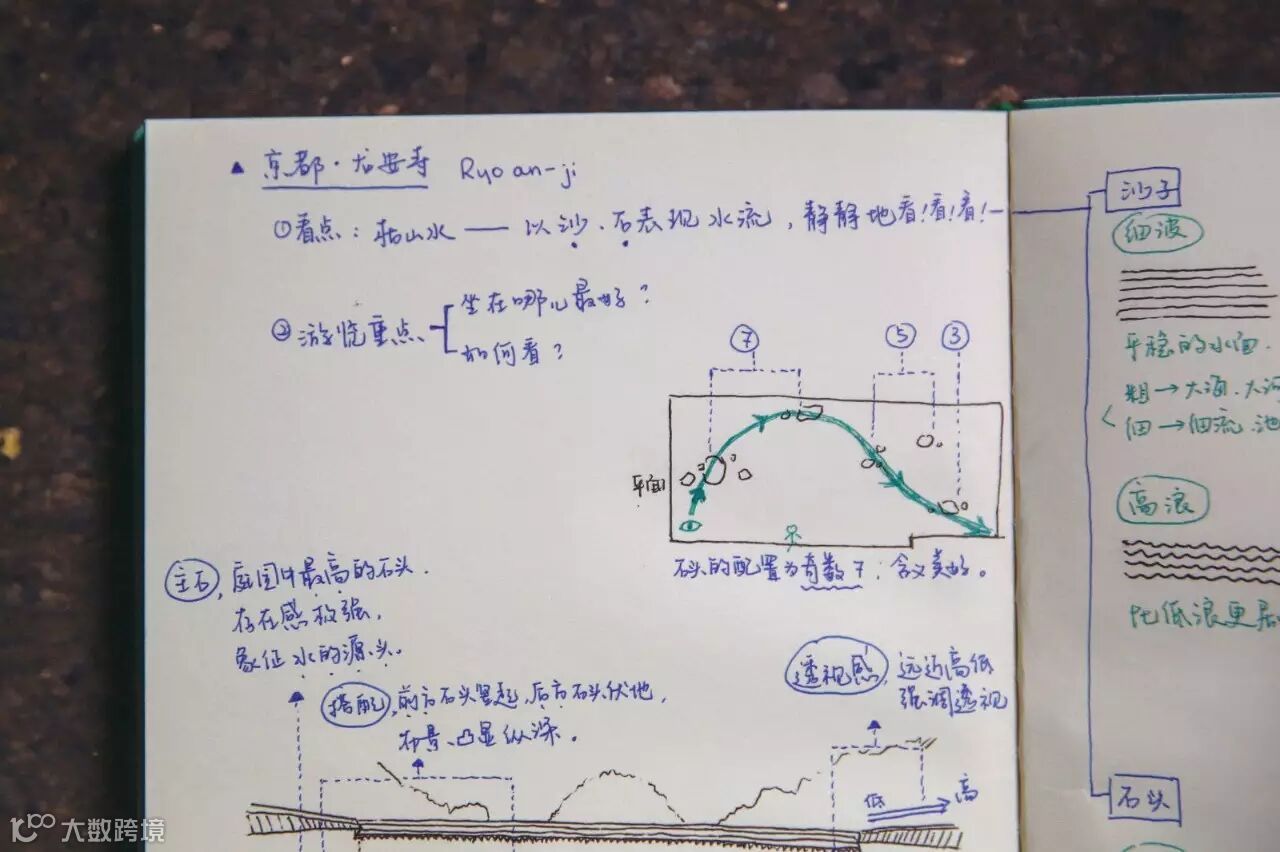 ▲ 京都·龙安寺 Ryoan-ji
①看点：枯山水——以沙、石表现水流，静静地看！看！看！
②游览重点
坐在哪儿最好？
如何看？
⑦ ⑤ ③
平面
石头的配置为奇数7，含义美好。
主石，庭园中最高的石头.
存在感极强，
象征水的源头。
搭配，前方石头竖起，后方石头伏地，
布景、凸显纵深。
透视感，远近高低
强调透视
低
高
沙子
细波
平稳的水面.
粗→大海.大河
细→细流.池
高浪
比低浪更
石头
大数跨境